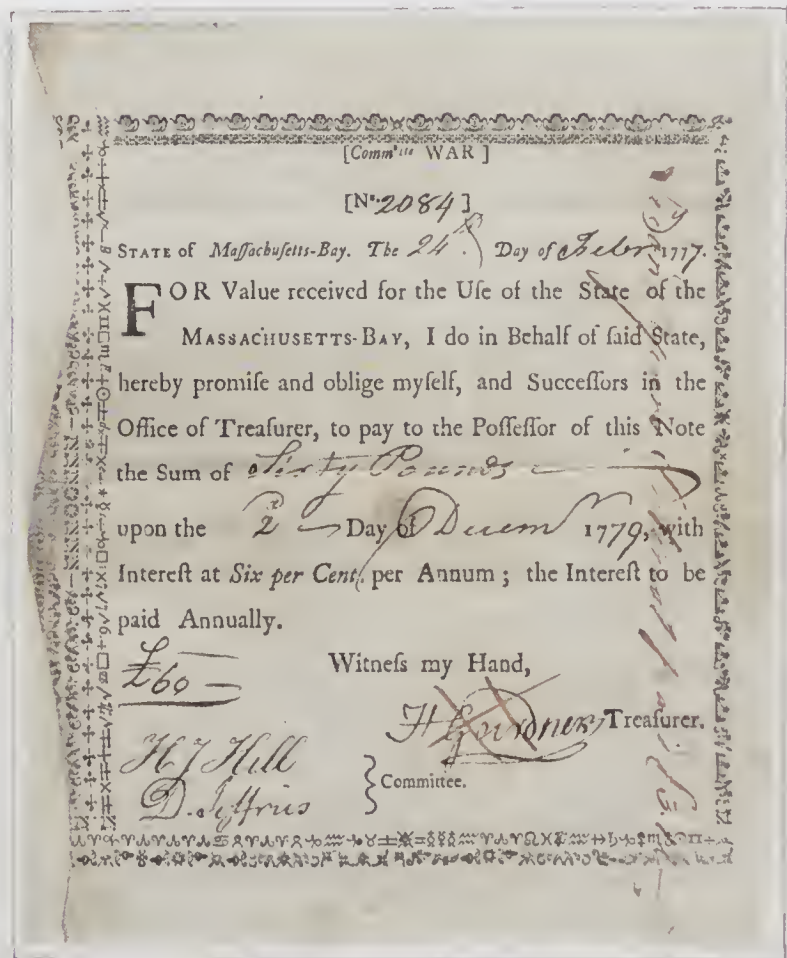 [Comm^tte WAR ]
[N^o. 2084 ]
STATE of Maſſachuſetts-Bay. The 24^th. Day of Febr 1777.
FOR Value received for the Uſe of the State of the
MASSACHUSETTS-BAY, I do in Behalf of ſaid State,
hereby promiſe and oblige myſelf, and Succeſſors in the
Office of Treaſurer, to pay to the Poſſeſſor of this Note
the Sum of Sixty Pounds
upon the 2 Day of Decem 1779, with
Intereſt at Six per Cent, per Annum ; the Intereſt to be
paid Annually.
Witneſs my Hand,
£60
H Gardner Treaſurer.
H J Hill
D. Jeffries
Committee.